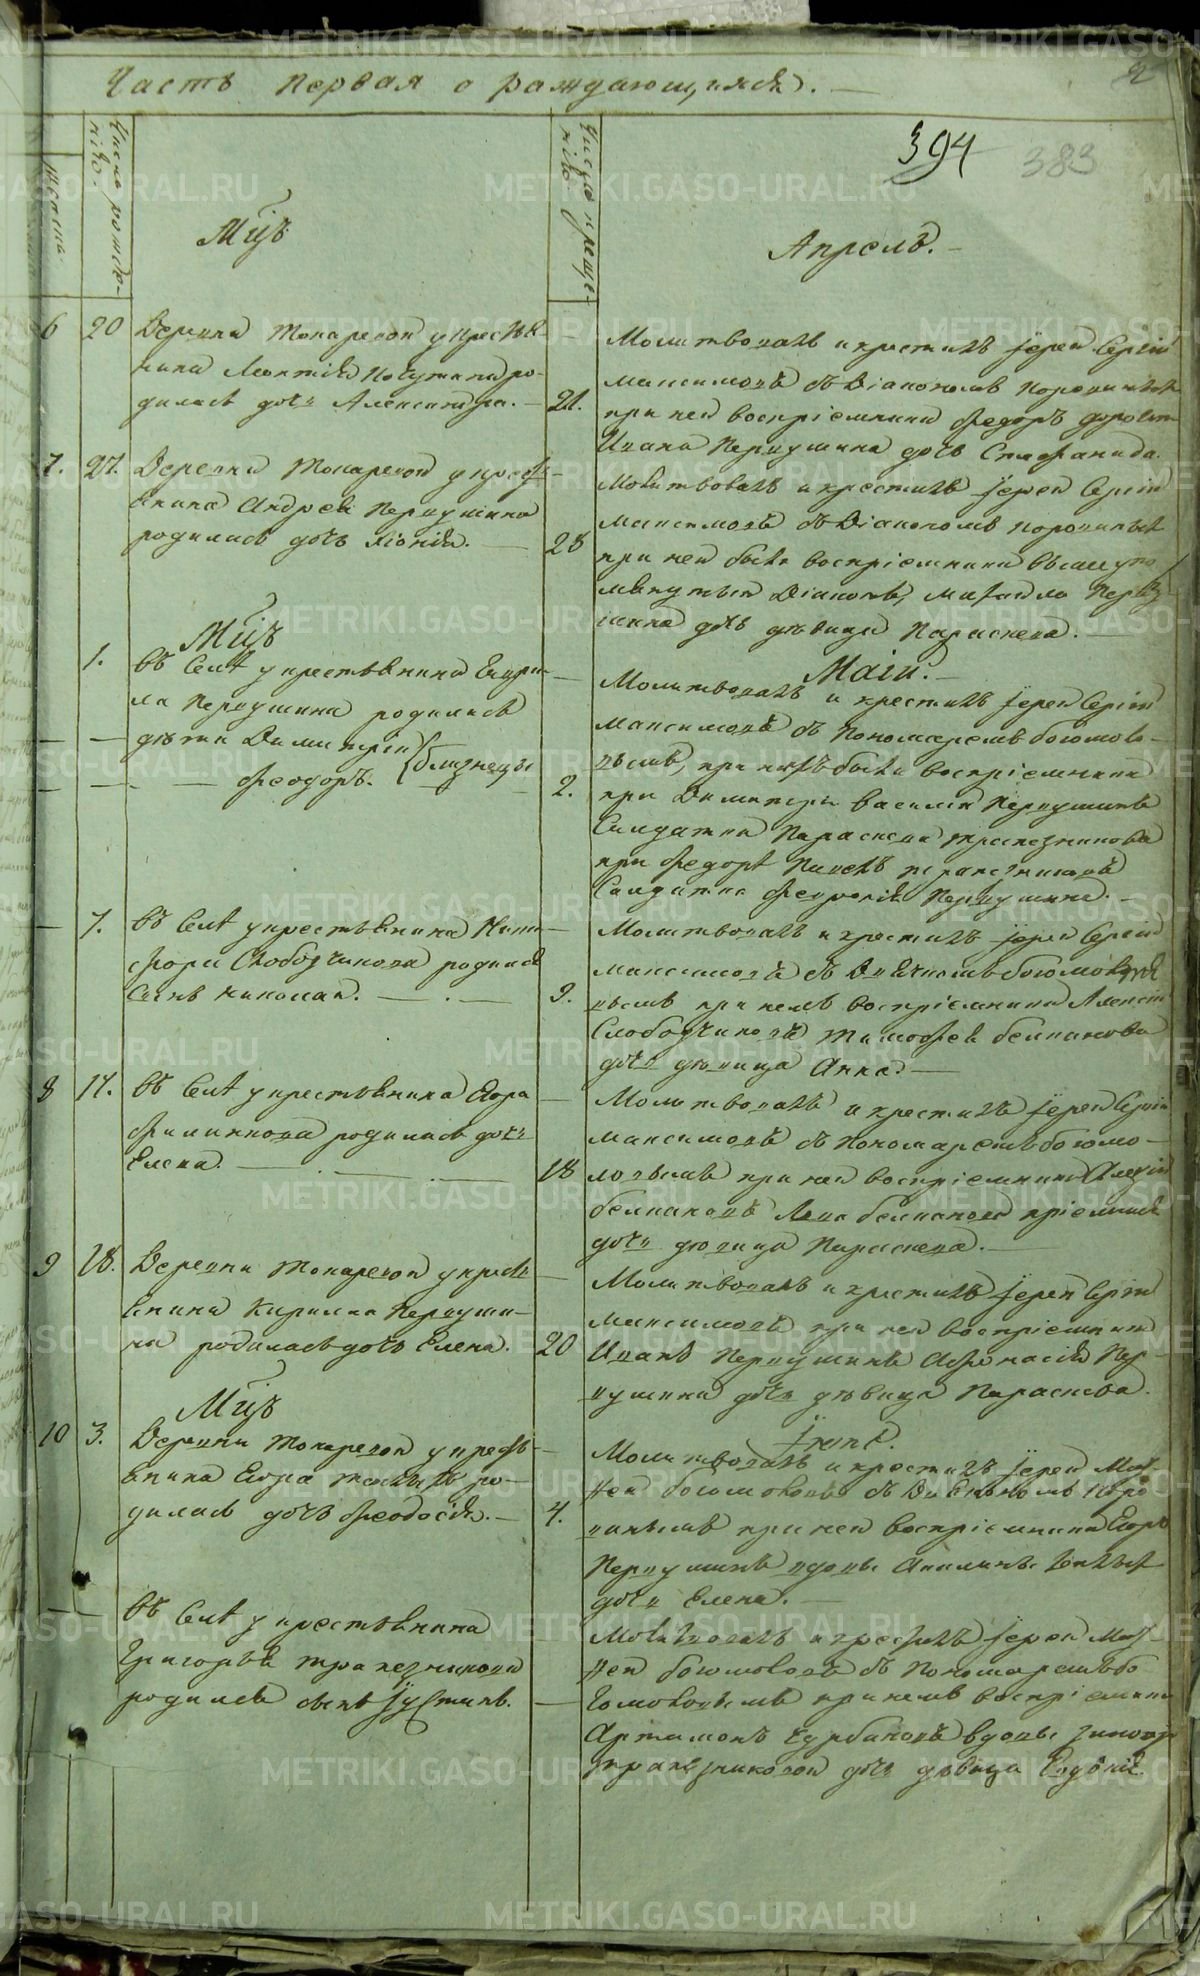 Часть Первая о раждающихся.
2
394
383
Месяцъ
Число рожде-
нiю.
Число креще-
нiю.
Мцъ
Апрель.
6 20 Деревни Токаревой у крестья-
нина Леонтiя Почутина ро-
дилась дочь Александра.
21.
Молитвовалъ и крестилъ Iерей Сергiй
Максимовъ съ Дiакономъ
при ней восприемники Федоръ
Ивана Первушина дочь Стефанида.
7. 27. Деревни Токаревой у кресть-
янина Андрея Первушина
родилась дочь
28
Молитвовалъ и крестилъ Iерей Сергiй
Максимовъ съ Дiакономъ
при ней были воспрiемники вышеупо-
мянутый Дiаконъ, Михаила Перву-
шина дочь девица Параскева.
Мцъ
Маiй.
1. Въ Селе у крестьянина Гаври-
ла Первушина родились
дети Димитрiй
Феодоръ. близнецы
2.
Молитвовалъ и крестилъ Iерей Сергiй
Максимовъ съ Пономаремъ Богомоло-
вымъ, при нихъ были воспрiемники
при Димитрiи Василiй Первушинъ
Солдатка Параскева Трапезникова
при Федоре Павелъ Трапезниковъ
Солдатка Феврония Первушина.
7. Въ Селе у крестьянина Ники-
фора Слободчикова родился
Сынъ Николай.
9.
Молитвовалъ и крестилъ Iерей Сергiй
Максимовъ съ Дьячкомъ Богомоло-
вымъ при немъ воспрiемники Алексей
Слободчиковъ Тимофея
дочь девица Анна.
8 17. Въ Селе у крестьянина Егора
Филиппова родилась дочь
Елена.
18
Молитвовалъ и крестилъ Iерей Сергiй
Максимовъ съ Пономаремъ Богомо-
ловымъ при ней воспрiемники
дочь девица Параскева.
9 18. Деревни Токаревой у кресть-
янина Кирилла Первуши-
на родилась дочь Елена.
20
Молитвовалъ и крестилъ Iерей Сергiй
Максимовъ при ней воспрiемники
Иванъ Первушинъ Афанасiя Пер-
вушина дочь девица Параскева.
Мцъ
Iюнь.
10 3. Деревни Токаревой у кресть-
янина Егора ро-
дилась дочь Феодосiя.
4.
Молитвовалъ и крестилъ Iерей Мат-
фей Богомоловъ съ Дiакономъ
при ней воспрiемники Егоръ
Первушинъ вдовы
дочь Елена.
Въ Селе у крестьянина
Григорья Трапезникова
родился сынъ Iустинъ.
Молитвовалъ и крестилъ Iерей Мат-
фей Богомоловъ съ Пономаремъ Бо-
гомоловымъ при немъ воспрiемники
Артамонъ вдовы
Трапезниковой дочь девица
METRIKI.GASO-URAL.RU